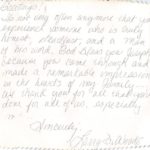 Greetings!
Do not very often anymore that you
experience someone who is truly
honest, steadfast, and a man
of his word. God bless you
because you came through and
made a remarkable impression
in the hearts of my family.
we thank you for all that you've
done for all of us, especially
me.
Sincerely,